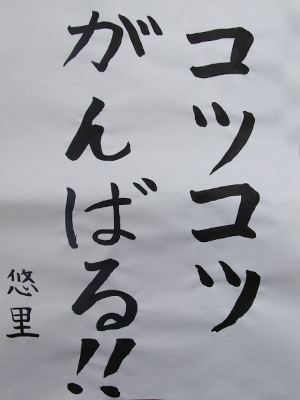 コツコツ
がんばる!!
悠里